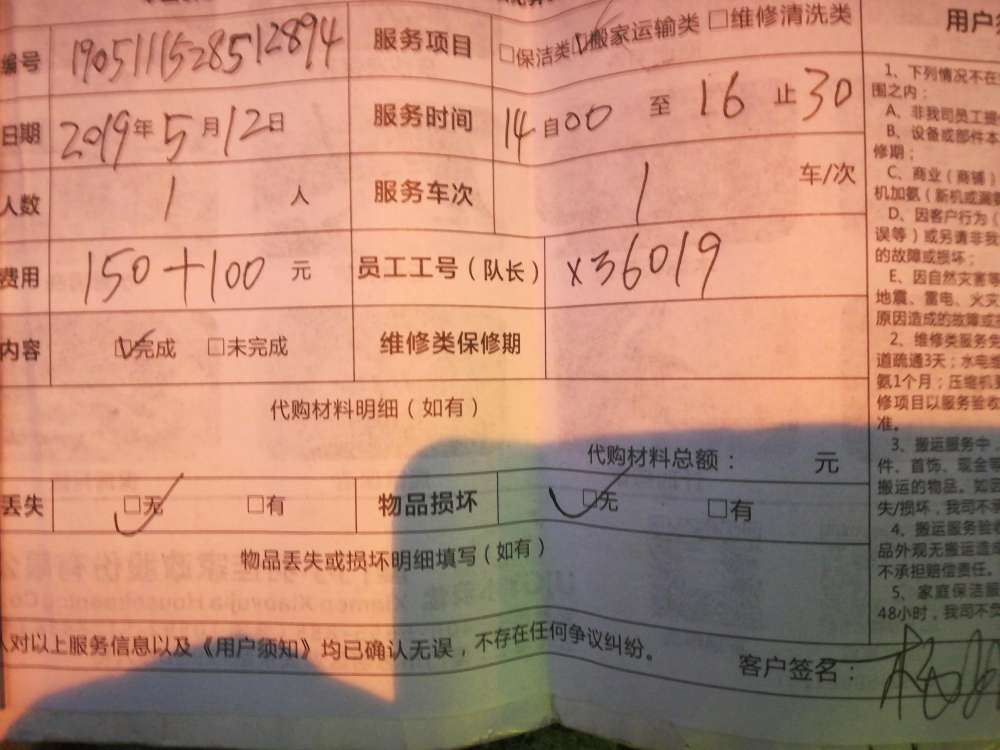 编号 1905111528512894 服务项目 □保洁类 ☑搬家运输类 □维修清洗类
日期 2019年5月12日 服务时间 14自00至16止30
人数 1人 服务车次 1车/次
费用 150+100元 员工工号（队长） X36019
内容 ☑完成 □未完成 维修类保修期
代购材料明细（如有）
代购材料总额： 元
丢失 ☑无 □有 物品损坏 ☑无 □有
物品丢失或损坏明细填写（如有）
人对以上服务信息以及《用户须知》均已确认无误，不存在任何争议纠纷。
客户签名：
用户
1、下列情况不在
围之内：
A、非我司员工
B、设备或部件本
修期；
C、商业（商铺）
机加氨（新机或漏
D、因客户行为（
误等）或另请非我
的故障或损坏；
E、因自然灾害等
地震、雷电、火灾
原因造成的故障或
2、维修类服务免
道疏通3天；水电
氨1个月；压缩机
修项目以服务验收
准。
3、搬运服务中，
件、首饰、现金等
搬运的物品。如
失/损坏，我司不
4、搬运服务验
品外观无搬运造
不承担赔偿责任。
5、家庭保洁服
48小时，我司不